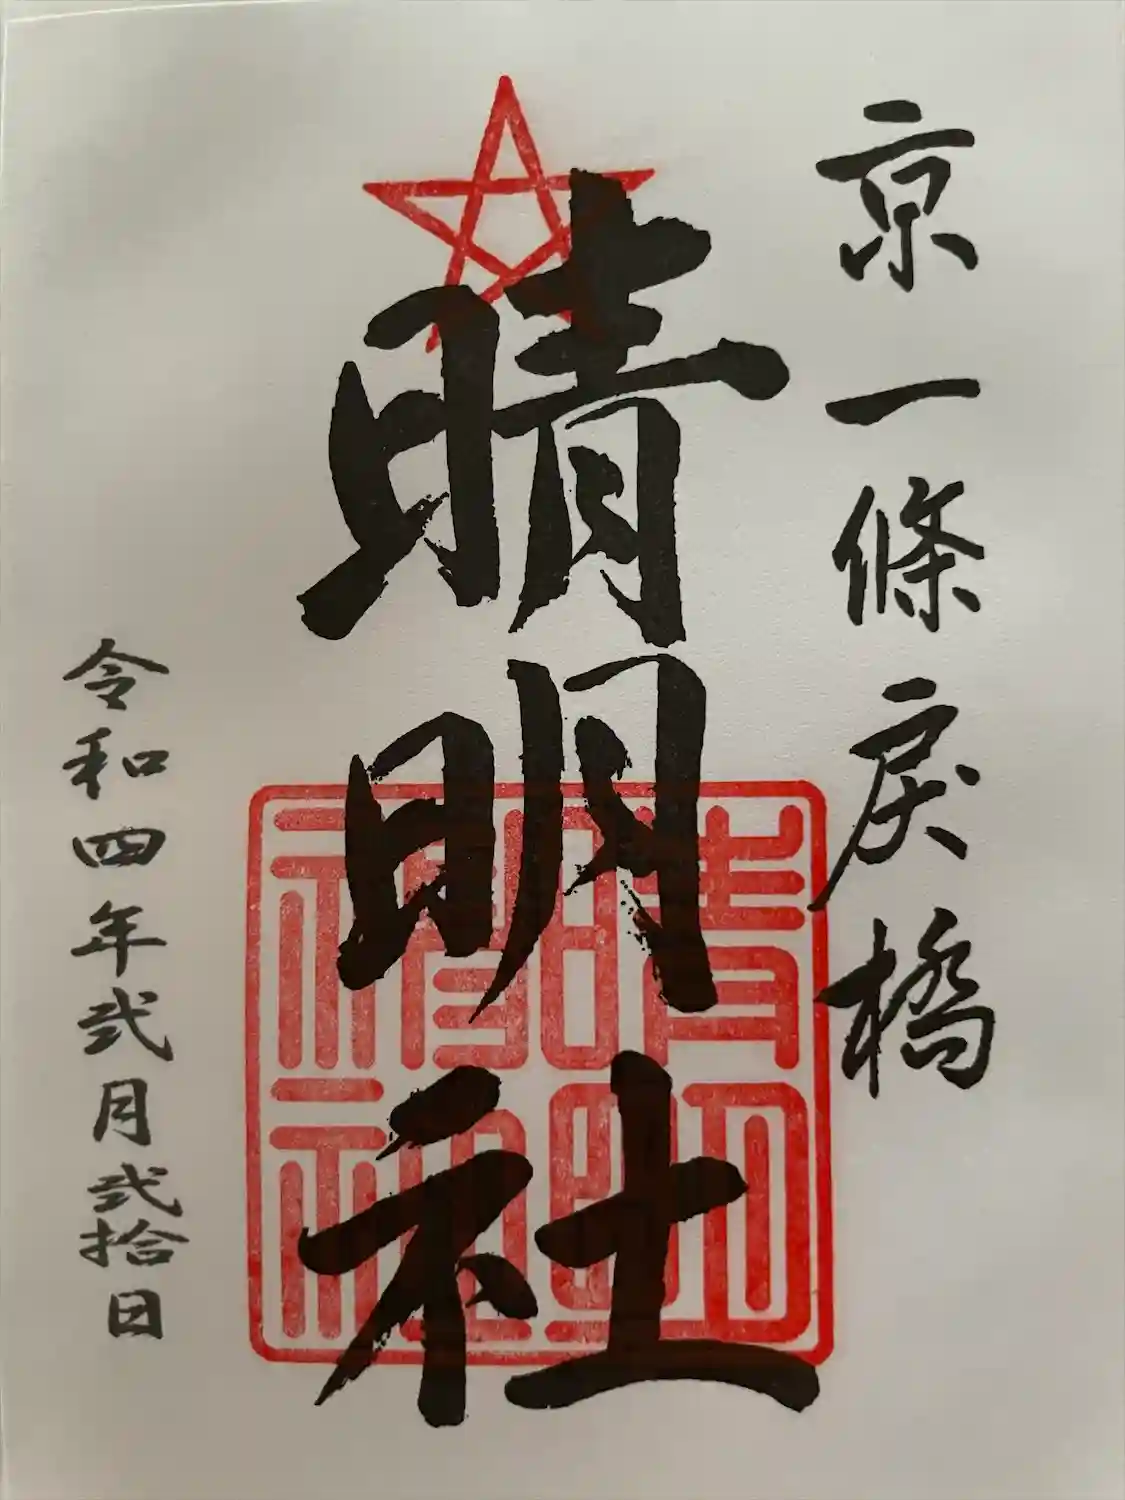 京一條戻橋
晴明社
令和四年弐月弐拾日